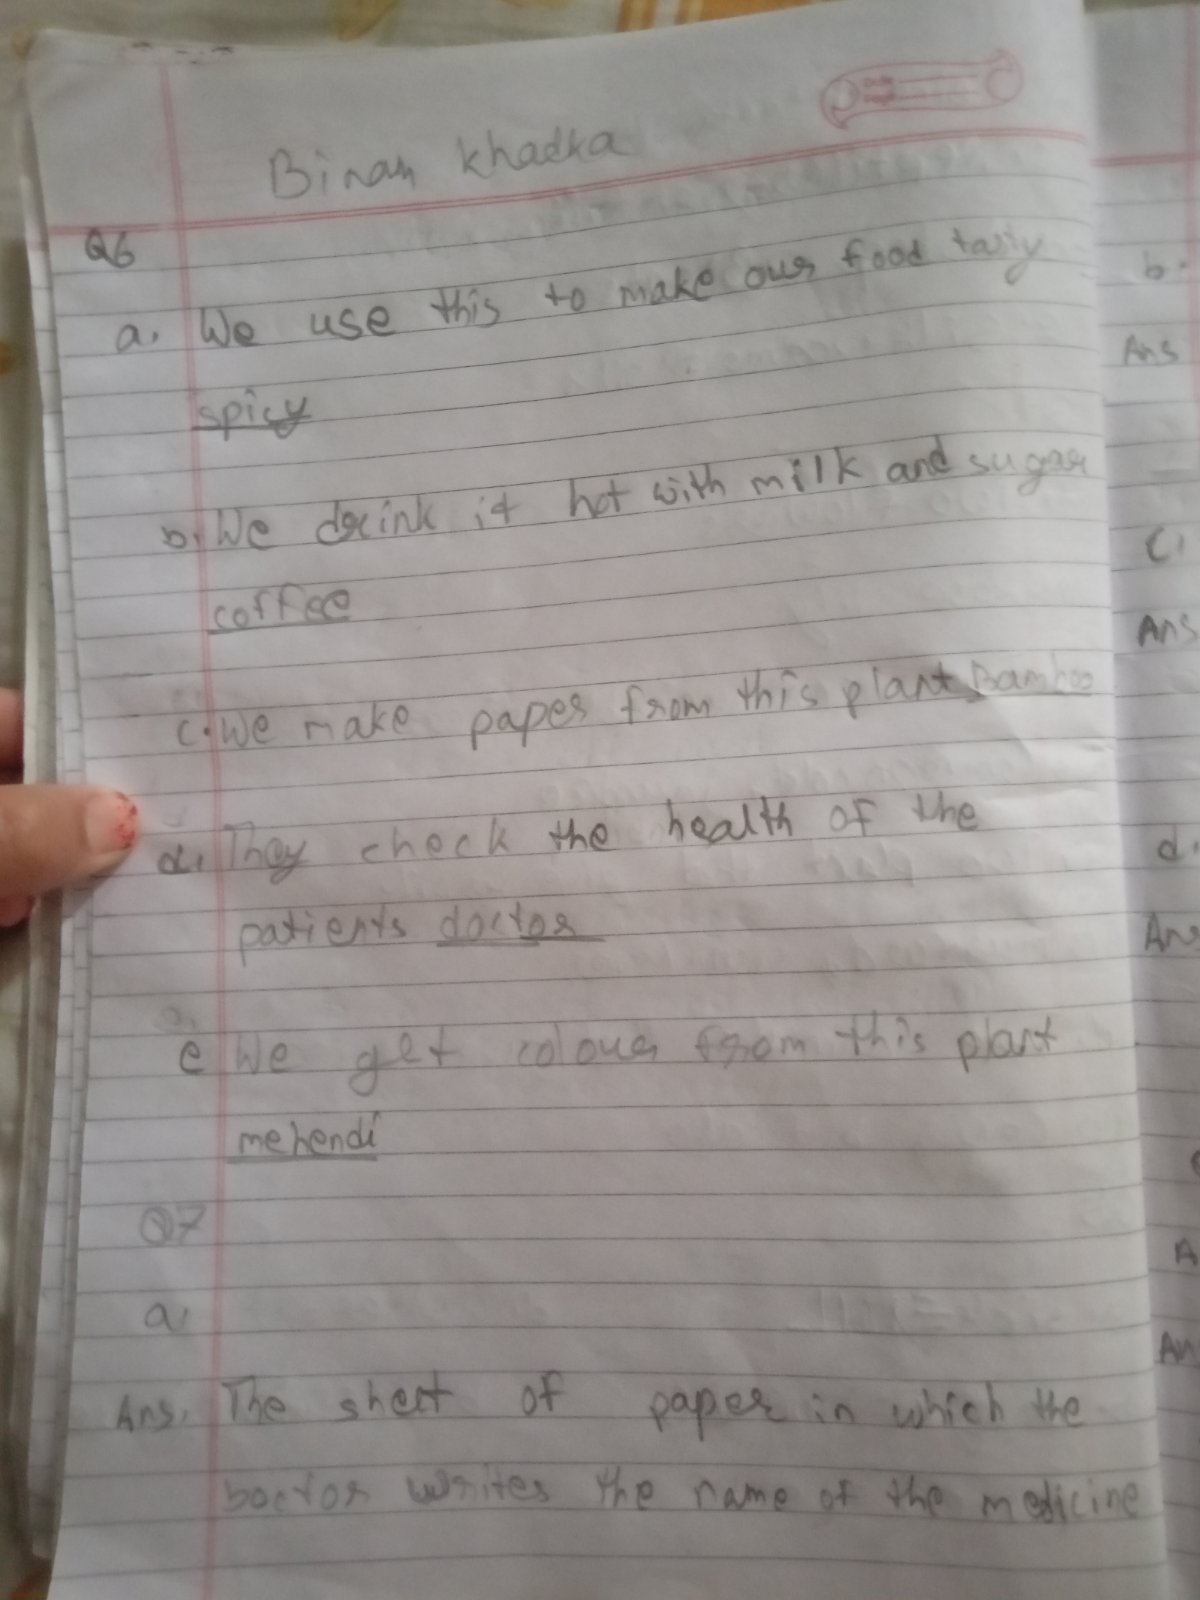 Binam Khadka
Q6
a. We use this to make our food tasty
spicy
b. We drink it hot with milk and sugar
coffee
c. We make paper from this plant Bamboo
d. They check the health of the
patients doctor
e We get colour from this plant
mehendi
Q7
a.
Ans. The sheet of paper in which the
Doctor writes the name of the medicine
b.
Ans
C.
Ans
d.
An
A
An